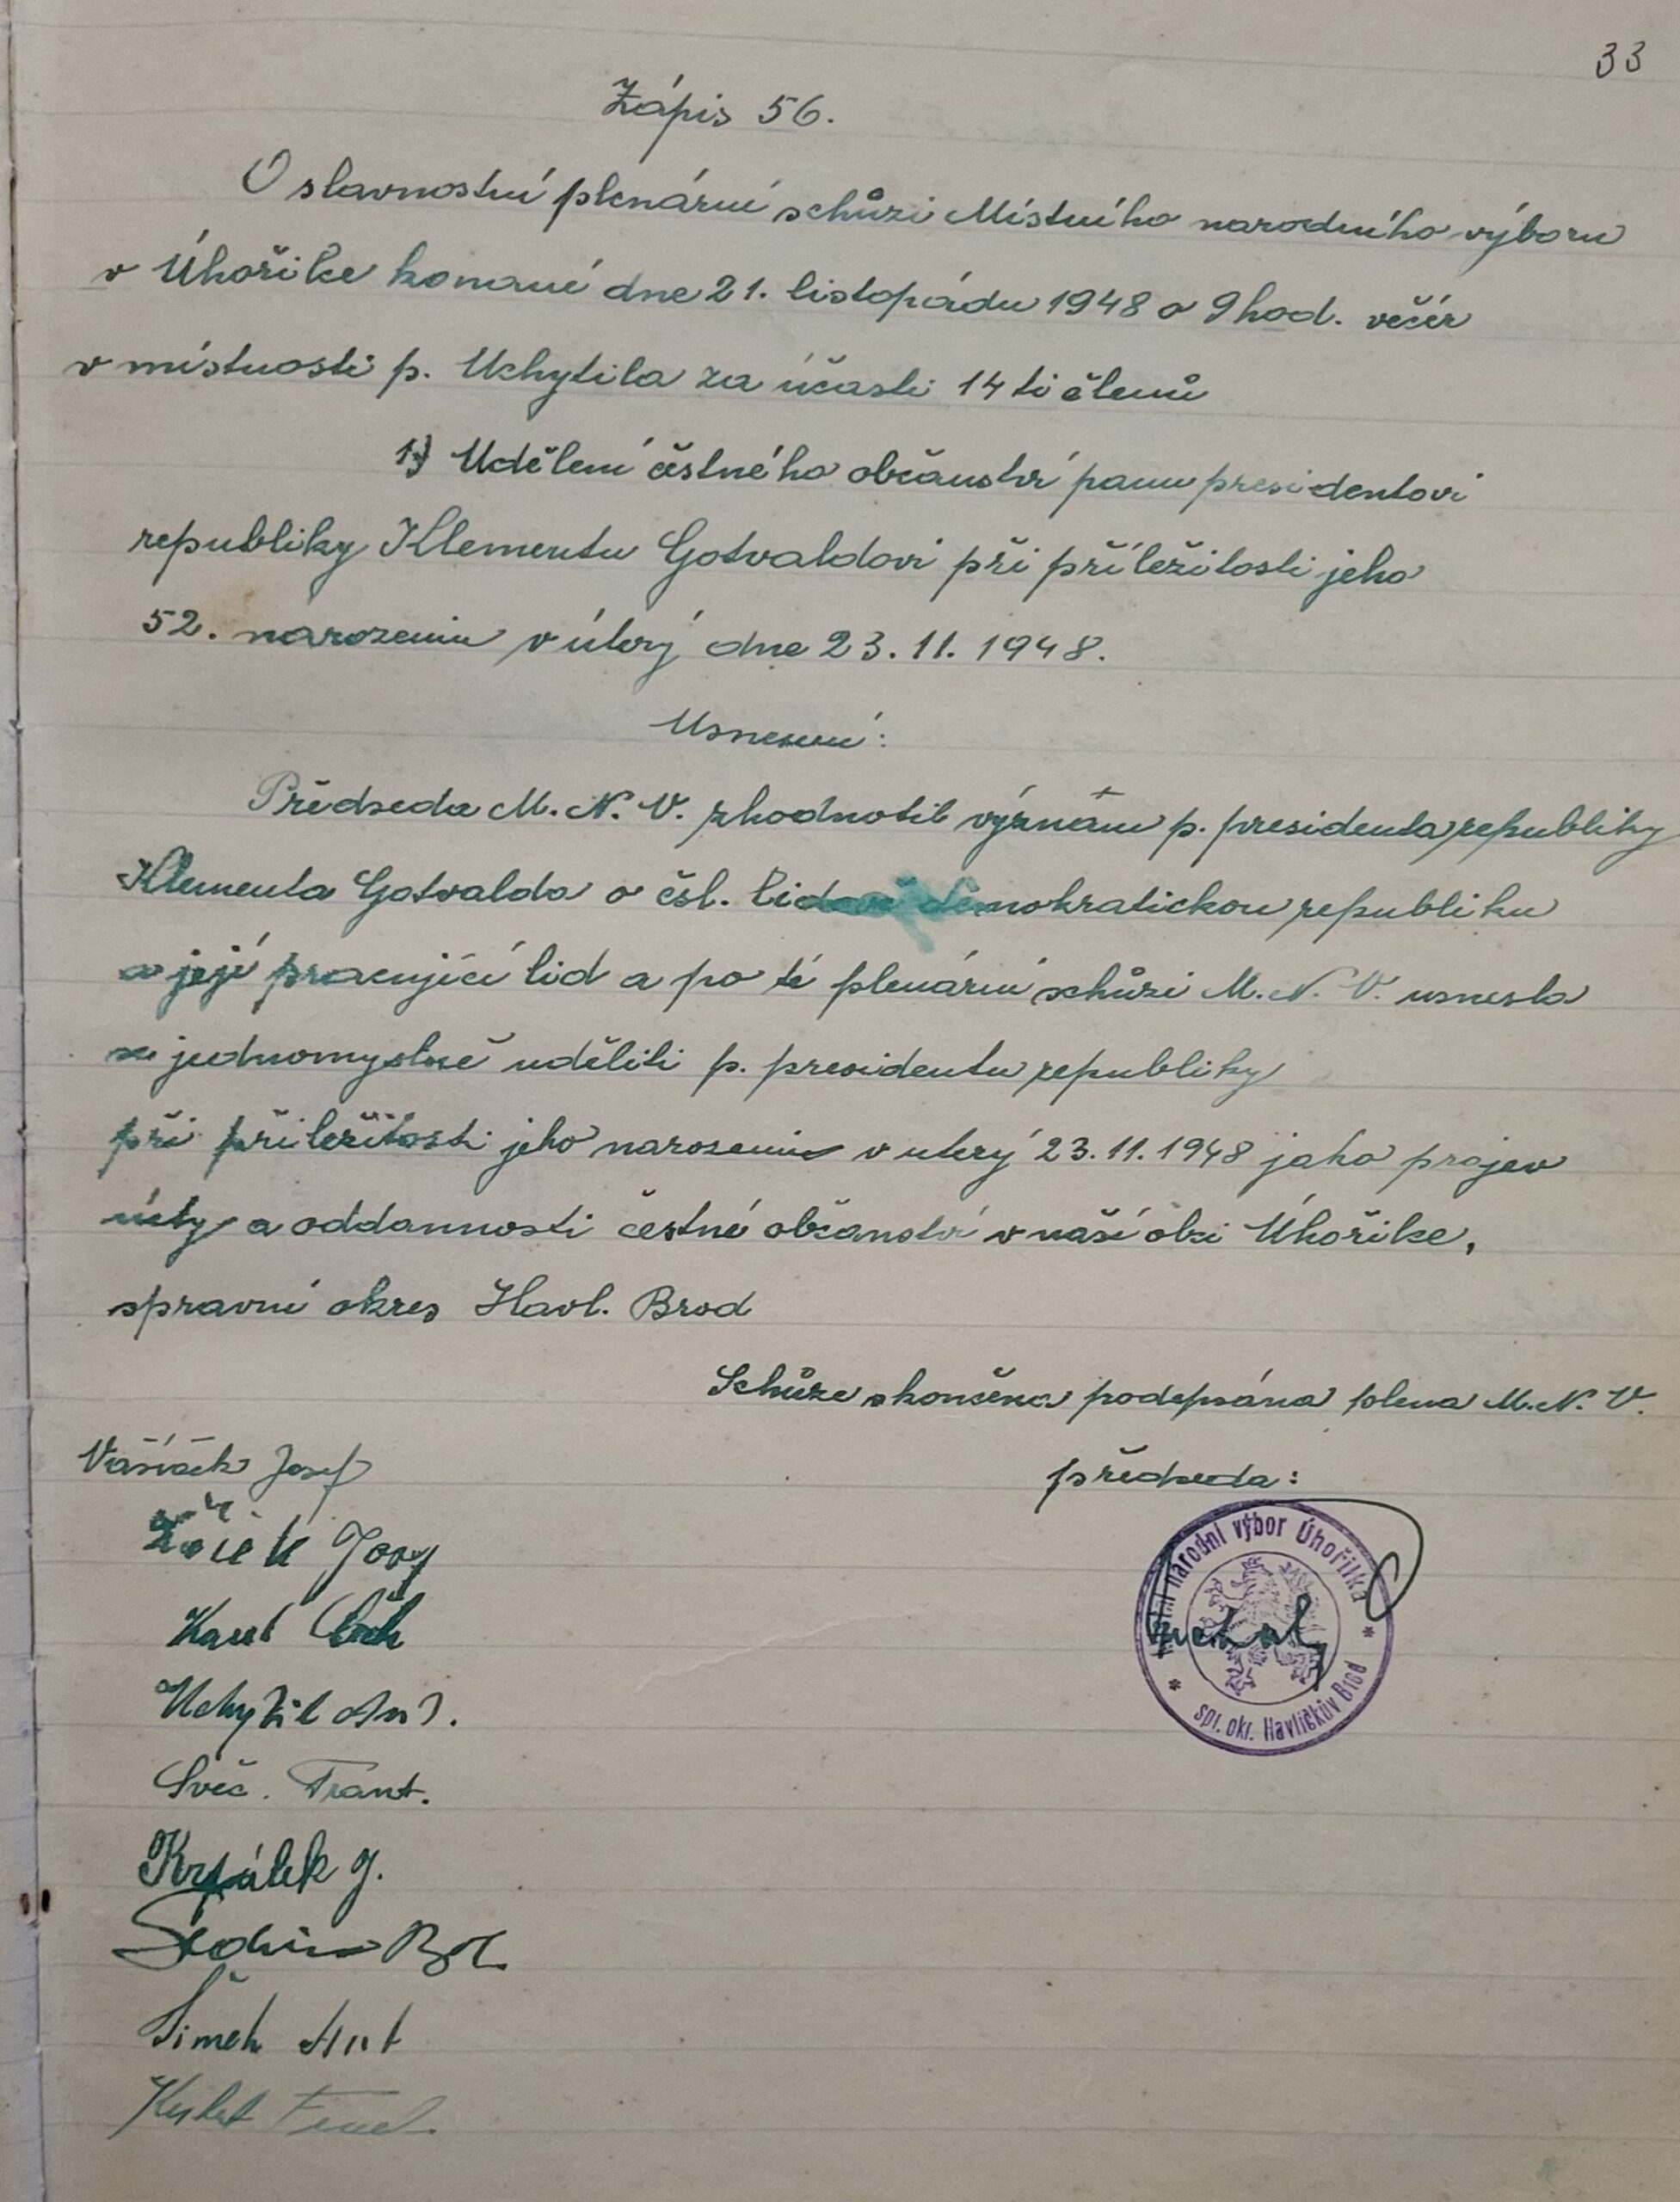 33
Zápis 56.
O slavnostní plenární schůzi Místního narodního výboru
v Úhořilce konané dne 21. listopádu 1948 o 9 hod. večer
v místnosti p. Uchytila za účasti 14 ti členů
1) Udělení čestného občanství panu presidentovi
republiky Klementu Gotvaldovi při příležitosti jeho
52. narozenin v úterý dne 23. 11. 1948.
Usnesení:
Předseda M. N. V. zhodnotil význám p. presidenta republiky
Klementa Gotvalda o čsl. lidově demokratickou republiku
a její pracující lid a po té plenární schůzi M. N. V. usnesla
se jednomyslně uděliti p. presidentu republiky
při příležitosti jeho narozenin v uterý 23. 11. 1948 jako projev
úcty a oddannosti čestné občanství v naší obci Úhořilce,
spravní okres Havl. Brod
Schůze skončena podepsána plena M. N. V.
předseda:
Vašíček Josef
Karel
Uchytil Ant.
Švéc. Frant.
Krpálek J.
Šimek Ant
Místní národní výbor Úhořilka
* spr. okr. Havlíčkův Brod *